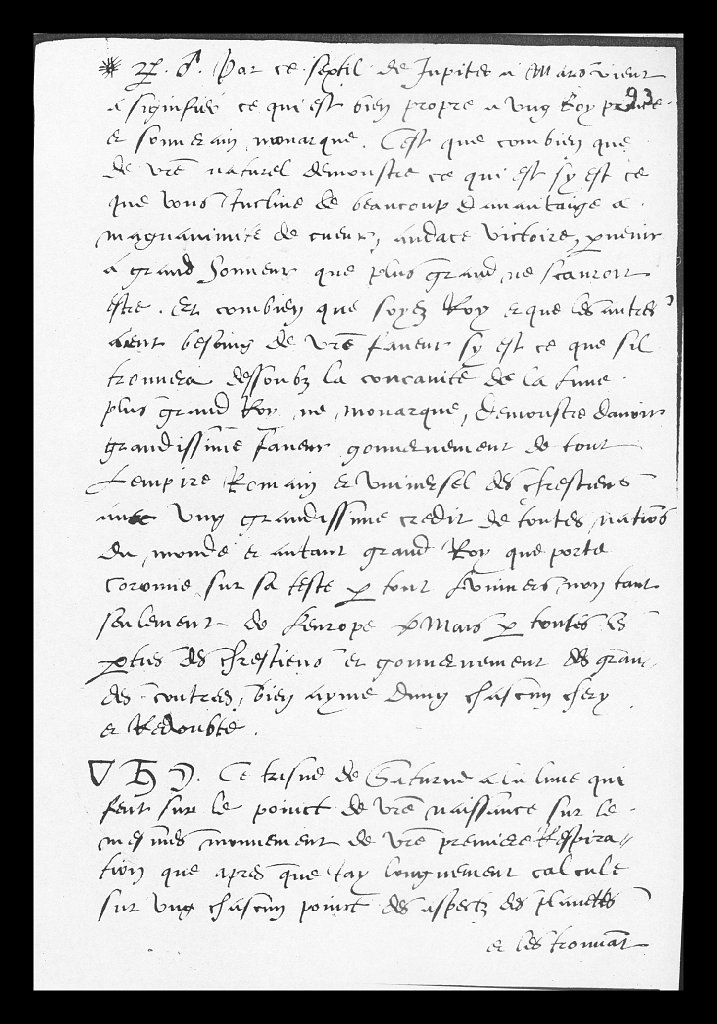 ✴ ♃. ♂. Par ce sextil de Jupiter a Mars vient
93
a signifier ce qui est bien propre a ung Roy prince
et souverain monarque. C'est que combien que
de vre naturel demonstre ce qui est sy est ce
que vous Incline de beaucoup davantaige a
magnanimite de cueur, audace victoire, pvenir
a grand honneur que plus grand ne scauroit
estre. Et combien que soyez Roy et que les autres
aient besoing de vre faveur sy est ce que sil
trouvera dessoubz la concavite de la lune
plus grand Roy ne monarque, demonstre davoir
grandissime faveur gouvernement de tout
Lempire Romain et universel des chrestiens
avec ung grandissime credit de toutes natios
du monde et autant grand Roy que porte
coronne sur sa teste p tout Lunivers non tant
seulement de Leurope Mais p toutes les
pties des chrestiens et gouvernement des gran-
des contrees, bien ayme dung chascun chery
et Redoubte.
▽ ♄ ☽. Ce trisne de Saturne a la lune qui
feut sur le poinct de vre naissance sur le
mesmes mouvement de vre premiere Respira-
tion que apres que Jay longuement calcule
sur ung chascun poinct des aspectz des planettes
et les trouvat